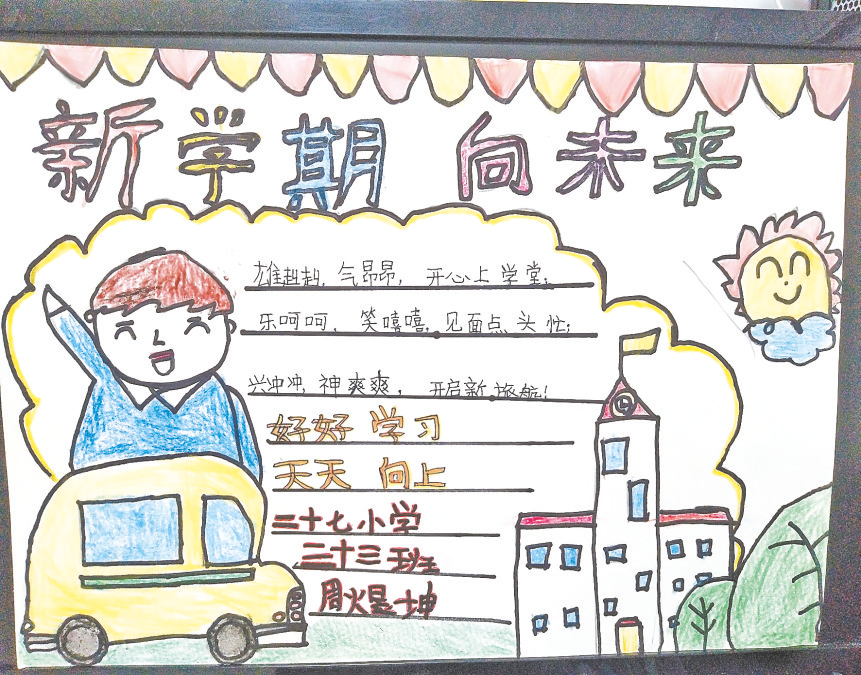 新学期 向未来
雄赳赳,气昂昂,开心上学堂;
乐呵呵,笑嘻嘻,见面点头忙;
兴冲冲,神爽爽,开启新旅航!
好好学习
天天向上
二十七小学
三十三班
周煜坤